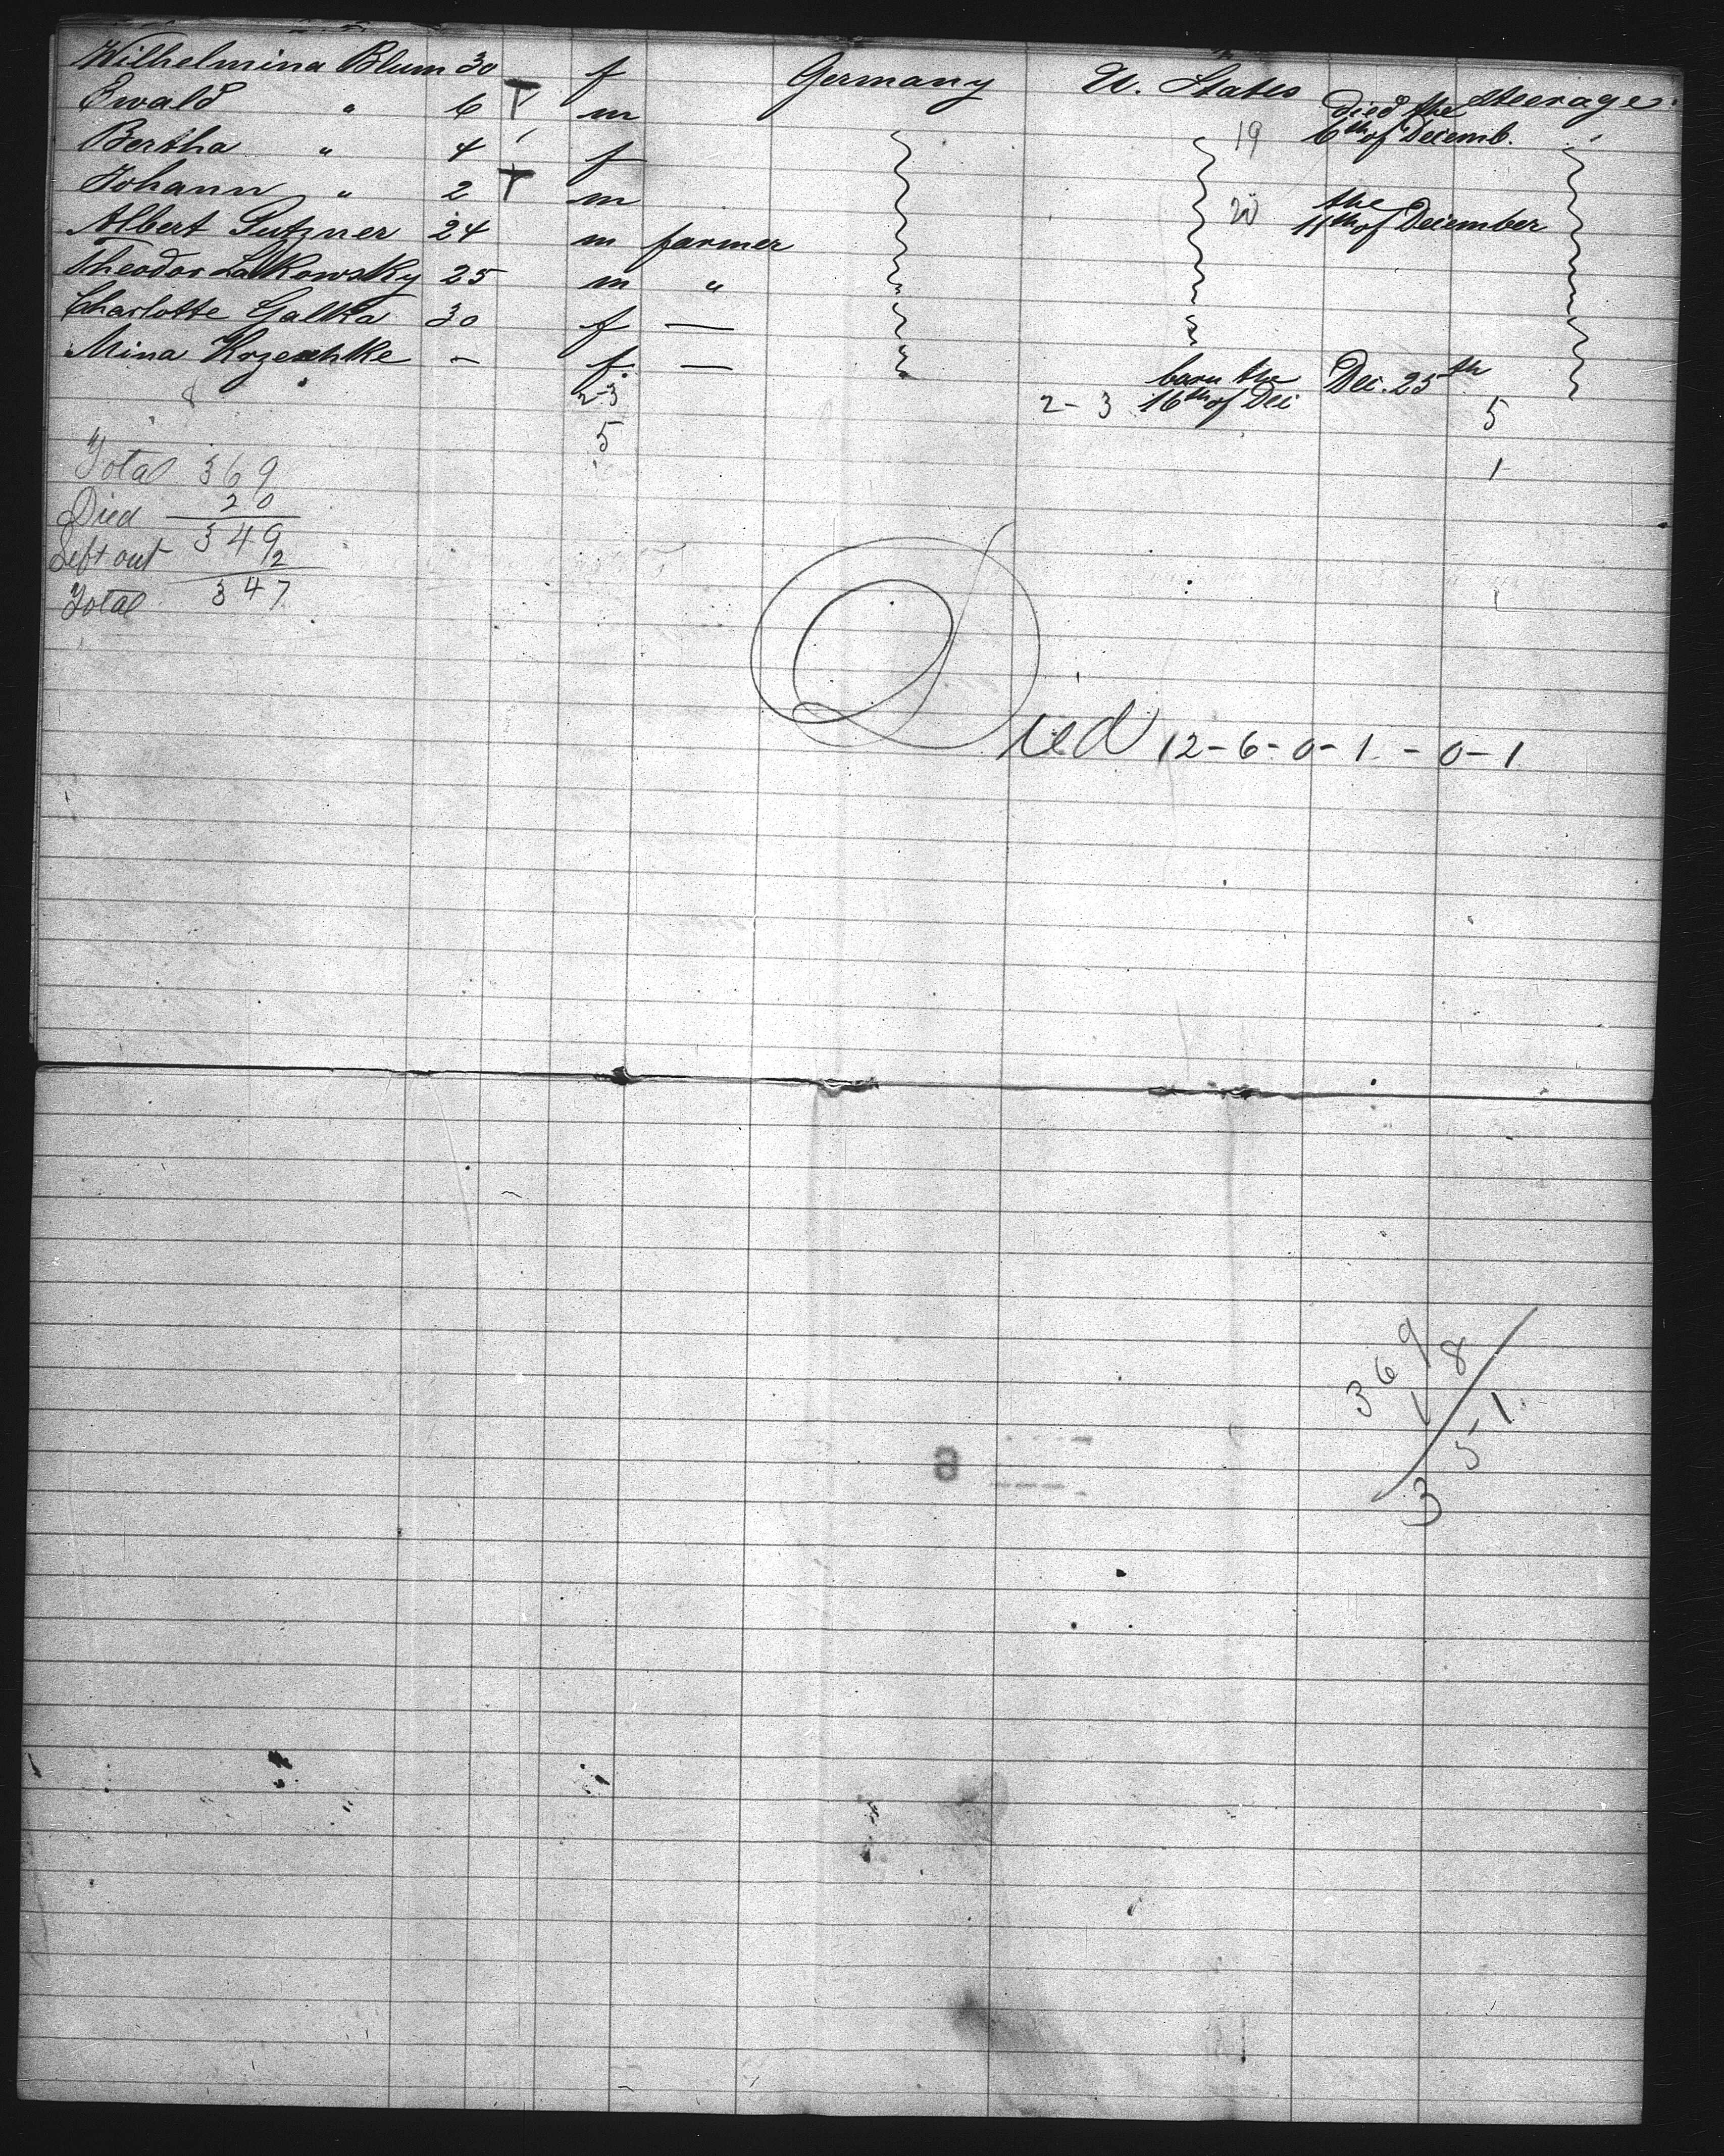 Wilhelmina Blum 30 f Germany U. States Steerage.
Ewald " 6 T m 19 died the 6th of Decemb.
Bertha " 4 f
Johann " 2 T m 20 the 11th of December
Albert Putzner 24 m farmer
Theodor Lalkowsky 25 m "
Charlotte Galka 30 f —
Mina - f — born the 16th of Dec Dec. 25th
8 2-3 2-3 5
5 1
Total 369
Died 20
349
Left out 2
Total 347
Died 12-6-0-1-0-1
369 8
1 1
5
3